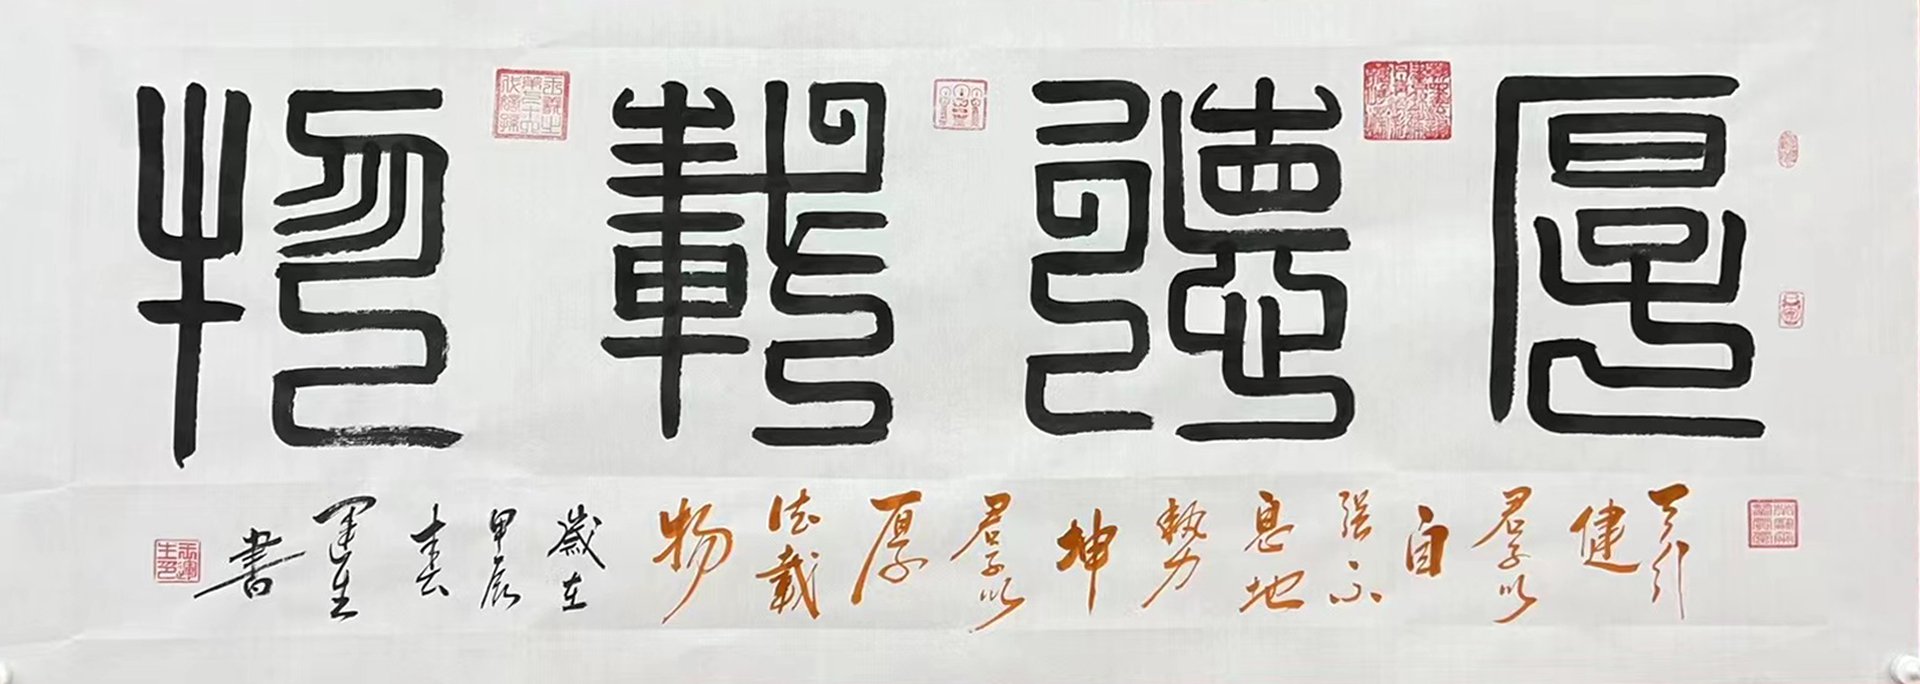 厚德載物
天行健君子以自强不息地勢坤君子以厚德載物
歲在甲辰春運生書